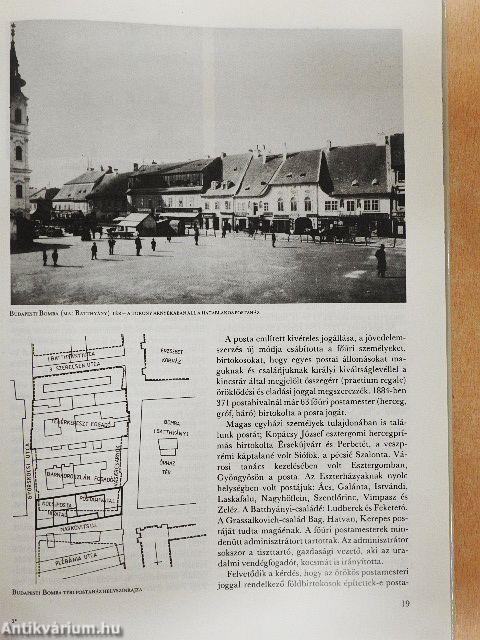 BUDAPESTI BOMBA (MA: BATTHYÁNY) TÉR – A TORONY ÁRNYÉKÁBAN ÁLL A HATABLAKOS POSTAHÁZ
ERZSÉBET
KÓRHÁZ
BOMBA
(BATTHYÁNY)
TÉR
MARKOVITS U.
PLÉBÁNIA UTCA
BUDAPESTI BOMBA TÉRI POSTAHÁZ HELYSZÍNRAJZA
A posta említett kivételes jogállása, a jövedelem-
szerzés új módja csábította a főúri személyeket,
birtokosokat, hogy egyes postai állomásokat ma-
guknak és családjuknak királyi kiváltságlevéllel a
kincstár által megjelölt összegért (praetium regale)
öröklődési és eladási joggal megszerezzék. 1884-ben
371 postahivatalnál már 65 főúri postamester (herceg,
gróf, báró) birtokolta a posta jogát.
Magas egyházi személyek tulajdonában is talá-
lunk postát; Kopácsy József esztergomi hercegprí-
más birtokolta Érsekújvárt és Perbetét, a veszp-
rémi káptalané volt Siófok, a pécsié Szalonta. Vá-
rosi tanács kezelésében volt Esztergomban,
Gyöngyösön a posta. Az Eszterházyaknak nyolc
helységben volt postájuk: Ács, Galánta, Istvándi,
Laskafalu, Nagyhöflein, Szentlőrinc, Vimpasz és
Zeléz. A Batthyányi-családé: Ludberek és Feketető.
A Grassalkovich-család Bag, Hatvan, Kerepes pos-
táját tudta magáénak. A főúri postamesterek min-
denütt adminisztrátort tartottak. Az adminisztrátor
sokszor a tiszttartó, gazdasági vezető, aki az ura-
dalmi vendégfogadót, kocsmát is irányította.
Felvetődik a kérdés, hogy az örökös postamesteri
joggal rendelkező földbirtokosok építettek-e posta-
19
Antikvárium.hu